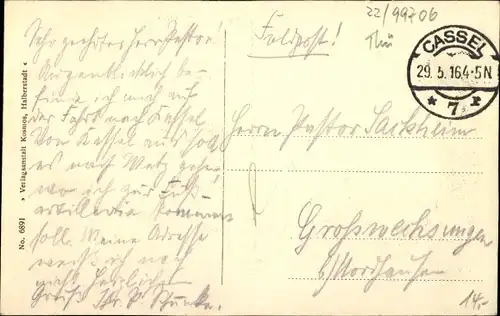 Sehr geehrter Herr Pastor!
Augenblicklich be-
finde ich mich auf
der Fahrt nach Kassel.
Von Kassel aus soll
es nach Metz gehen,
wo ich zur Fuß-
artillerie kommen
soll. Meine Adresse
weiß ich noch
nicht. Herzlichen
Gruß Ihr P.
Feldpost!
22/99706
Thü
CASSEL
29.5.16.4-5N
* 7 r
Herrn Pastor
Großwechsungen
b/Nordhausen
14,-
No. 6891 » Verlagsanstalt Kosmos, Halberstadt «